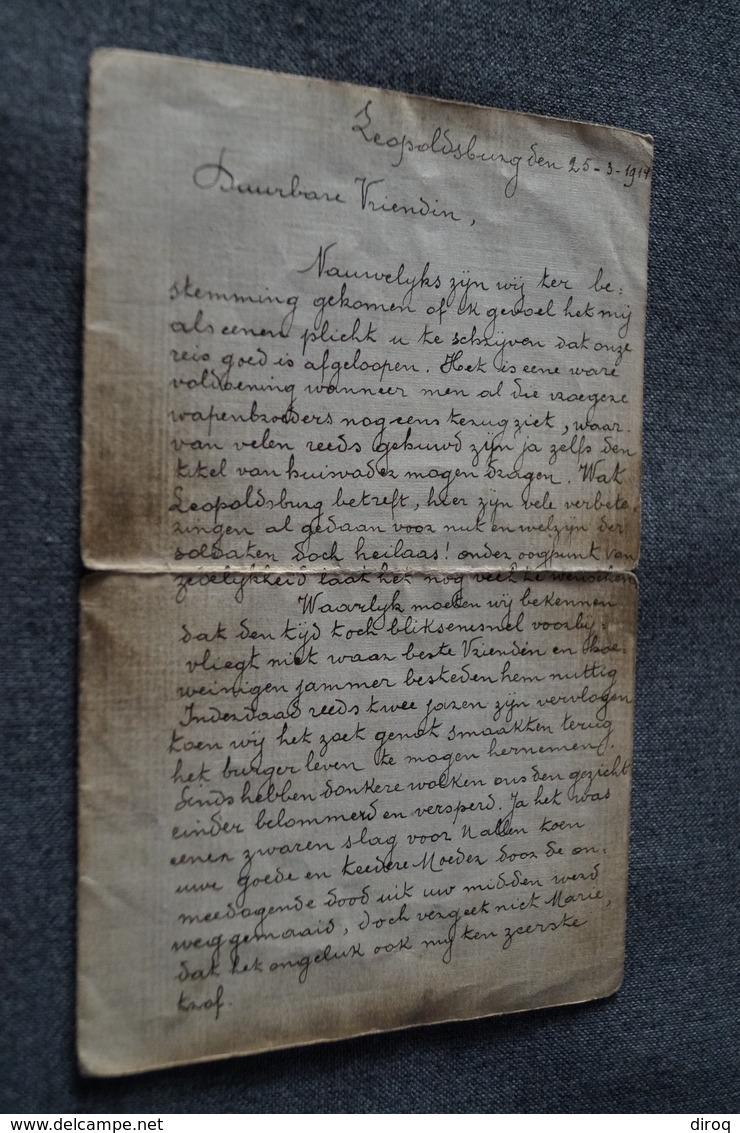 Leopoldsburg den 25-3-1914
Duurbare Vriendin,
Nauwelyks zyn wij ter be:
stemming gekomen of ik gevoel het mij
als eenen plicht u te schrijven dat onze
reis goed is afgeloopen. Het is eene ware
voldoening wanneer men al die vroegere
wapenbroeders nog eens terug ziet, waar-
van velen reeds gehuwd zijn ja zelfs den
titel van huisvader mogen dragen. Wat
Leopoldsburg betreft, hier zijn vele verbete
ringen al gedaan voor nut en welzyn der
soldaten doch heilaas! onder oogpunt van
zedelykheid laat het nog veel te wenschen
Waarlyk moeten wij bekennen
dat den tyd toch bliksemsnel voorby:
vliegt niet waar beste Vriendin en hoe
weinigen jammer besteden hem nuttig
Inderdaad reeds twee jaren zyn vervlogen
toen wij het zoet genot smaakten terug
het burger leven te mogen hernemen.
Sinds hebben donkere wolken ons den gezicht
einder belommerd en versperd. Ja het was
eenen zwaren slag voor U allen toen
uwe goede en teedere Moeder door de on:
meedogende dood uit uw midden werd
weggemaaid, doch vergeet niet Marie,
dat het ongeluk ook my ten zeerste
trof.
delcampe.net
diroq